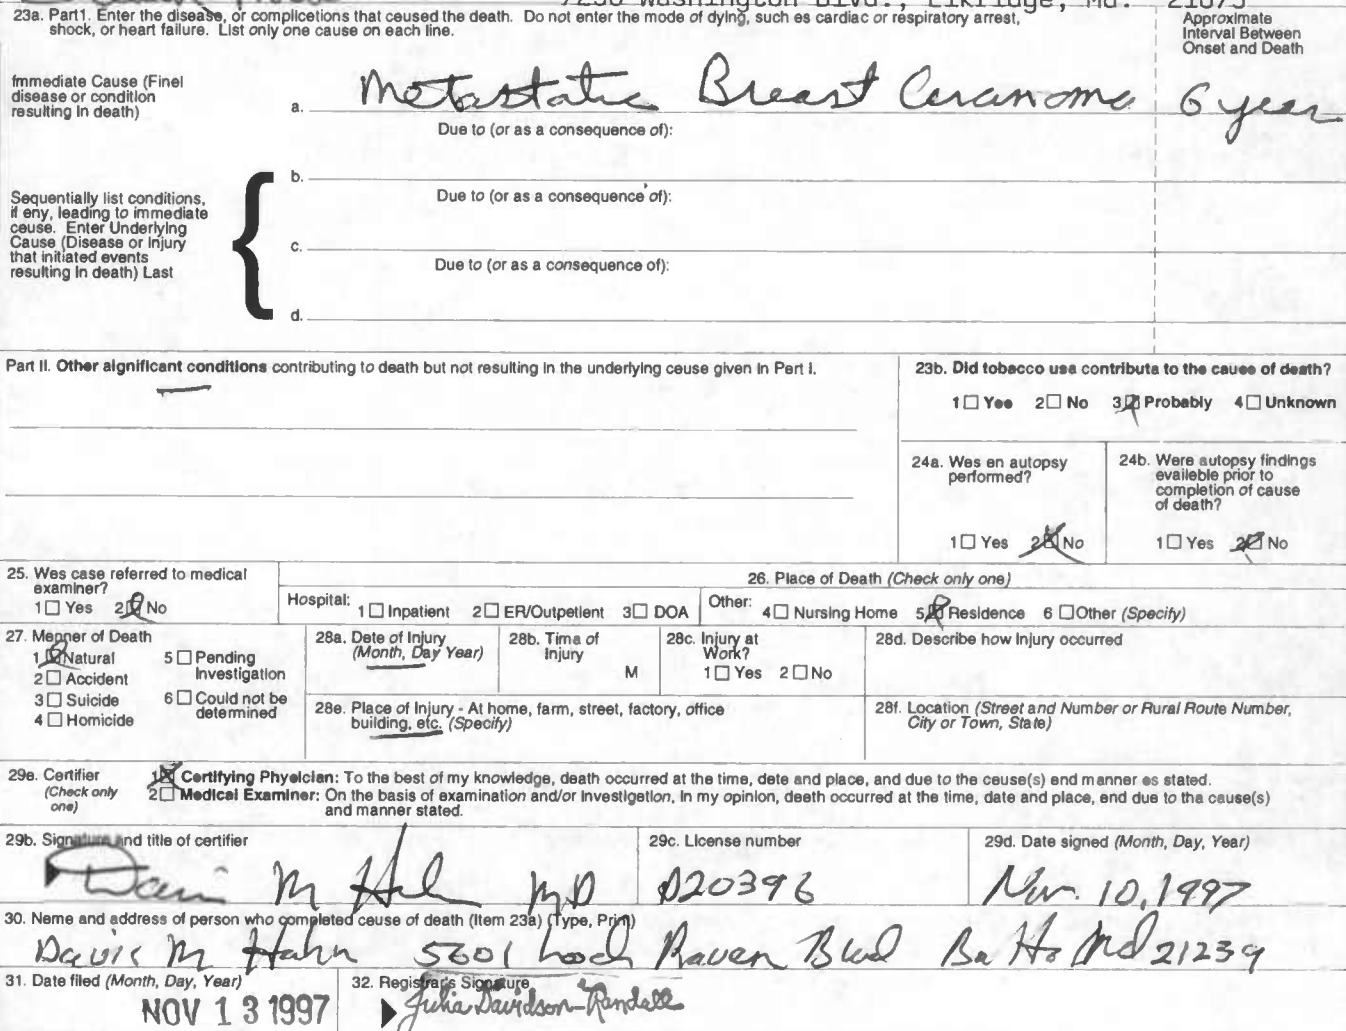 7250 Washington Blvd., Elkridge, Md. 21075
23a. Part1. Enter the disease, or complicetions that ceused the death. Do not enter the mode of dying, such es cardiac or respiratory arrest,
shock, or heart failure. List only one cause on each line.
Approximate
Interval Between
Onset and Death
Immediate Cause (Finel
disease or condition
resulting In death)
a. Metastatic Breast Carcinoma 6 year
Due to (or as a consequence of):
b.
Due to (or as a consequence of):
Sequentially list conditions,
if eny, leading to immediate
ceuse. Enter Underlying
Cause (Disease or Injury
that initiated events
resulting In death) Last
c.
Due to (or as a consequence of):
d.
Part II. Other significant conditions contributing to death but not resulting in the underlying ceuse given in Pert I.
23b. Did tobacco usa contributa to the cause of death?
1 ☐ Yes 2 ☐ No 3 ☒ Probably 4 ☐ Unknown
24a. Wes en autopsy
performed?
1 ☐ Yes 2 ☒ No
24b. Were autopsy findings
eveileble prior to
completion of cause
of death?
1 ☐ Yes 2 ☒ No
25. Wes case referred to medical
examiner?
1 ☐ Yes 2 ☒ No
26. Place of Death (Check only one)
Hospital: 1 ☐ Inpatient 2 ☐ ER/Outpetient 3 ☐ DOA Other: 4 ☐ Nursing Home 5 ☒ Residence 6 ☐ Other (Specify)
27. Menner of Death
1 ☒ Natural 5 ☐ Pending
Investigation
2 ☐ Accident
3 ☐ Suicide 6 ☐ Could not be
determined
4 ☐ Homicide
28a. Dete of Injury
(Month, Day Year)
28b. Tima of
Injury
M
28c. Injury at
Work?
1 ☐ Yes 2 ☐ No
28d. Describe how Injury occurred
28e. Place of Injury - At home, farm, street, factory, office
building, etc. (Specify)
28f. Location (Street and Number or Rural Route Number,
City or Town, State)
29e. Certifier
(Check only
one)
1 ☒ Certifying Physician: To the best of my knowledge, death occurred at the time, dete and place, and due to the ceuse(s) end manner es stated.
2 ☐ Medical Examiner: On the basis of examination and/or Investigetion, in my opinion, deeth occurred at the time, date and place, end due to tha cause(s)
and manner stated.
29b. Signature and title of certifier
M Hahn MD
29c. License number
D20396
29d. Date signed (Month, Day, Year)
Nov. 10, 1997
30. Name and address of person who completed ceuse of death (Item 23a) (Type, Print)
Davis M Hahn 5601 Loch Raven Blvd Balto Md 21239
31. Date filed (Month, Day, Year)
NOV 13 1997
32. Registrar's Signature
Julia Davidson-Randall